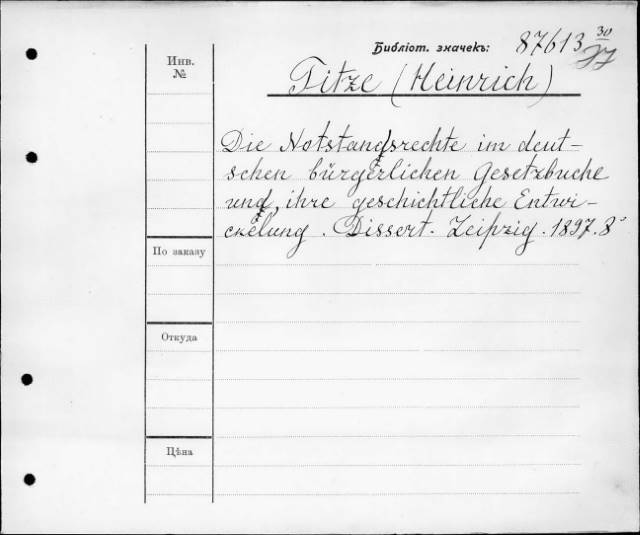 Инв.
№
Библіот. значекъ: 87613 30
77
Titze (Heinrich)
Die Notstandsrechte im deut-
schen bürgerlichen Gesetzbuche
und ihre geschichtliche Entwi-
ckelung. Dissert. Leipzig. 1897. 8°
По заказу
Откуда
Цѣна